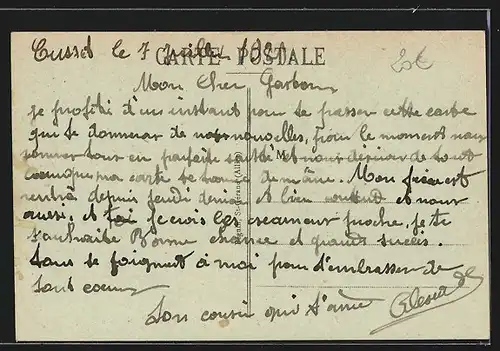 Cusset le 7 juillet
CARTE POSTALE
Mon Cher Gaston
je profite d'un instant pour te passer cette carte
qui te donnerar de nos nouvelles, pour le moment nous
sommes tous en parfaite santé et nous désirons de tout
coeur que ma carte te trouve de même. Mon frère est
rentré depuis jeudi dernier et bien content et nous
aussi. et toi je crois les examens proche, je te
souhaite Bonne chance et grands succès.
Tous se joignent à moi pour t'embrasser de
tout coeur
Ton cousin qui t'aime